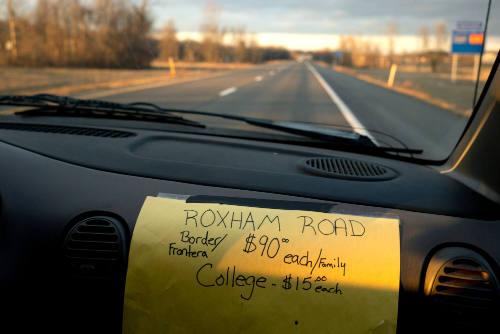 ROXHAM ROAD
Border/ $90.00 each/Family
Frontera
College - $15.00 each